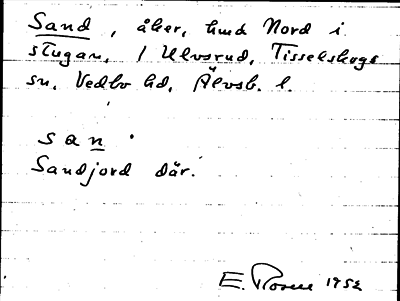 Sand, åker, hmd Nord i
stugan, 1 Ulvsrud, Tisselskogs
sn, Vedbo hd, Älvsb. l.
san
Sandjord där.
E. Rosen 1952